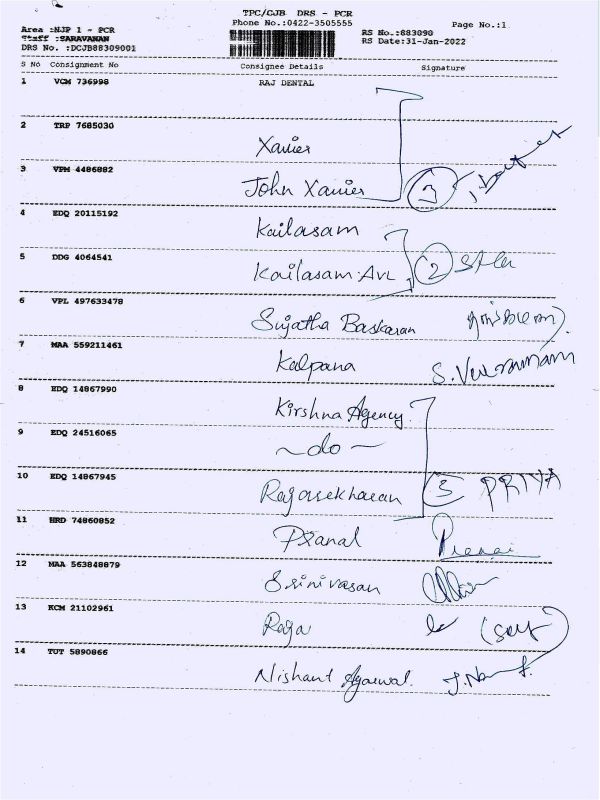 TPC/CJB DRS - PCR
Area :NJP 1 - PCR Phone No.:0422-3505555 Page No.:1
Staff :SARAVANAN RS No.:883090
DRS No. :DCJB88309001 RS Date:31-Jan-2022
S No Consignment No Consignee Details Signature
1 VCM 736998 RAJ DENTAL
2 TRP 7685030 Xavier
3 VPM 4486882 John Xavier 3
4 EDQ 20115192 Kailasam
5 DDG 4064541 Kailasam.AVL 2
6 VPL 497633478 Sujatha Baskaran
7 MAA 559211461 Kalpana
8 EDQ 14867990 Kirshna Agency
9 EDQ 24516065 ~do~
10 EDQ 14867945 Rajasekharan 3 PRIYA
11 HRD 74860852 Pranal
12 MAA 563848879 Srinivasan
13 KCM 21102961 Raja
14 TUT 5890866 Nishant Agarwal